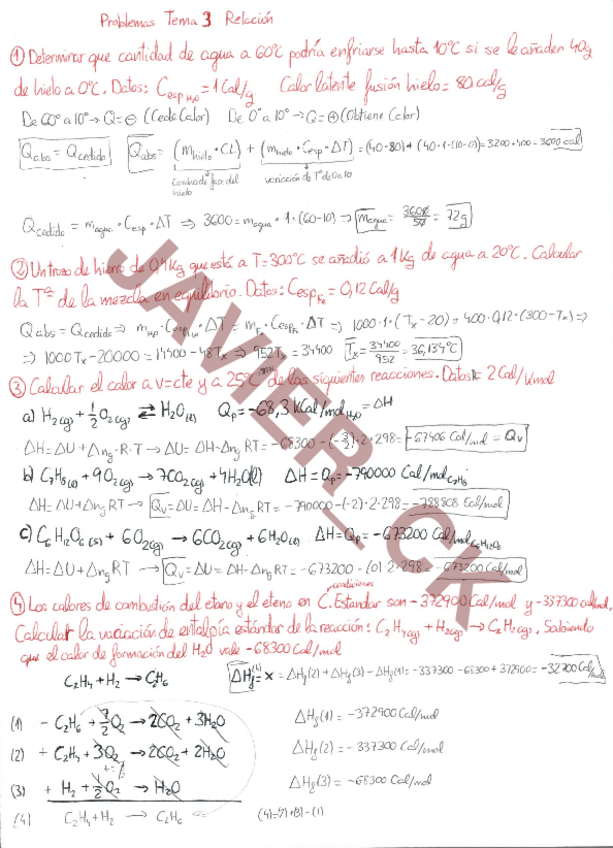 Problemas Tema 3 Relación
① Determinar que cantidad de agua a 60ºC podría enfriarse hasta 10ºC si se le añaden 40g
de hielo a 0ºC. Datos: Cesp H₂O = 1 Cal/g Calor latente fusión hielo = 80 cal/g
De 60º a 10º → Q = ⊖ (Cede Calor) De 0º a 10º → Q = ⊕ (Obtiene Calor)
Qabs = Qcedido Qabs = (mhielo · CL) + (mhielo · Cesp · ΔT) = (40·80) + (40·1·(10-0)) = 3200+400 = 3600 cal
Cambio de fase del hielo variación de Tª de 0 a 10
Qcedido = magua · Cesp · ΔT ⇒ 3600 = magua · 1 · (60-10) ⇒ magua = 3600/50 = 72g
② Un trozo de hierro de 0,4 Kg que está a T=300ºC se añadió a 1Kg de agua a 20ºC. Calcular
la Tª de la mezcla en equilibrio. Datos: Cesp Fe = 0,12 Cal/g
Qabs = Qcedido ⇒ mH₂O · Cesp H₂O · ΔT = mFe · CespFe · ΔT ⇒ 1000·1·(Tx-20) = 400·0,12·(300-Tx) ⇒
⇒ 1000Tx - 20000 = 14400 - 48Tx ⇒ 952Tx = 34400 Tx = 34400/952 = 36,134ºC
③ Calcular el calor a v=cte y a 25ºC de las siguientes reacciones. Datos R = 2 Cal/Kmol
a) H₂(g) + ½O₂(g) ⇄ H₂O(l) Qp = -68,3 KCal/mol H₂O = ΔH
ΔH = ΔU + Δng·R·T → ΔU = ΔH - Δng RT = -68300 - (-3/2)·2·298 = -67406 Cal/mol = Qv
b) C₇H₈(l) + 9O₂(g) → 7CO₂(g) + 4H₂O(l) ΔH = Qp = -790000 Cal/mol C₇H₈
ΔH = ΔU + Δng RT → Qv = ΔU = ΔH - Δng RT = -790000 - (-2)·2·298 = -788808 Cal/mol
c) C₆H₁₂O₆(s) + 6O₂(g) → 6CO₂(g) + 6H₂O(l) ΔH = Qp = -673200 Cal/mol C₆H₁₂O₆
ΔH = ΔU + Δng RT → Qv = ΔU = ΔH - Δng RT = -673200 - (0)·2·298 = -673200 Cal/mol
condiciones
④ Los calores de combustión del etano y el eteno en C. Estandar son -372900 Cal/mol y -337300 cal/mol.
Calcular la variación de entalpía estándar de la reacción: C₂H₄(g) + H₂(g) → C₂H₆(g). Sabiendo
que el calor de formación del H₂O vale -68300 Cal/mol
C₂H₄ + H₂ → C₂H₆ ΔHf(4) = x = ΔHf(2) + ΔHf(3) - ΔHf(1) = -337300 - 68300 + 372900 = -32700 Cal/mol
(1) - C₂H₆ + 7/2O₂ → 2CO₂ + 3H₂O ΔHf(1) = -372900 Cal/mol
(2) + C₂H₄ + 3O₂ → 2CO₂ + 2H₂O ΔHf(2) = -337300 Cal/mol
(3) + H₂ + ½O₂ → H₂O ΔHf(3) = -68300 Cal/mol
(4) C₂H₄ + H₂ → C₂H₆ (4) = (2) + (3) - (1)
JAVIER_CK